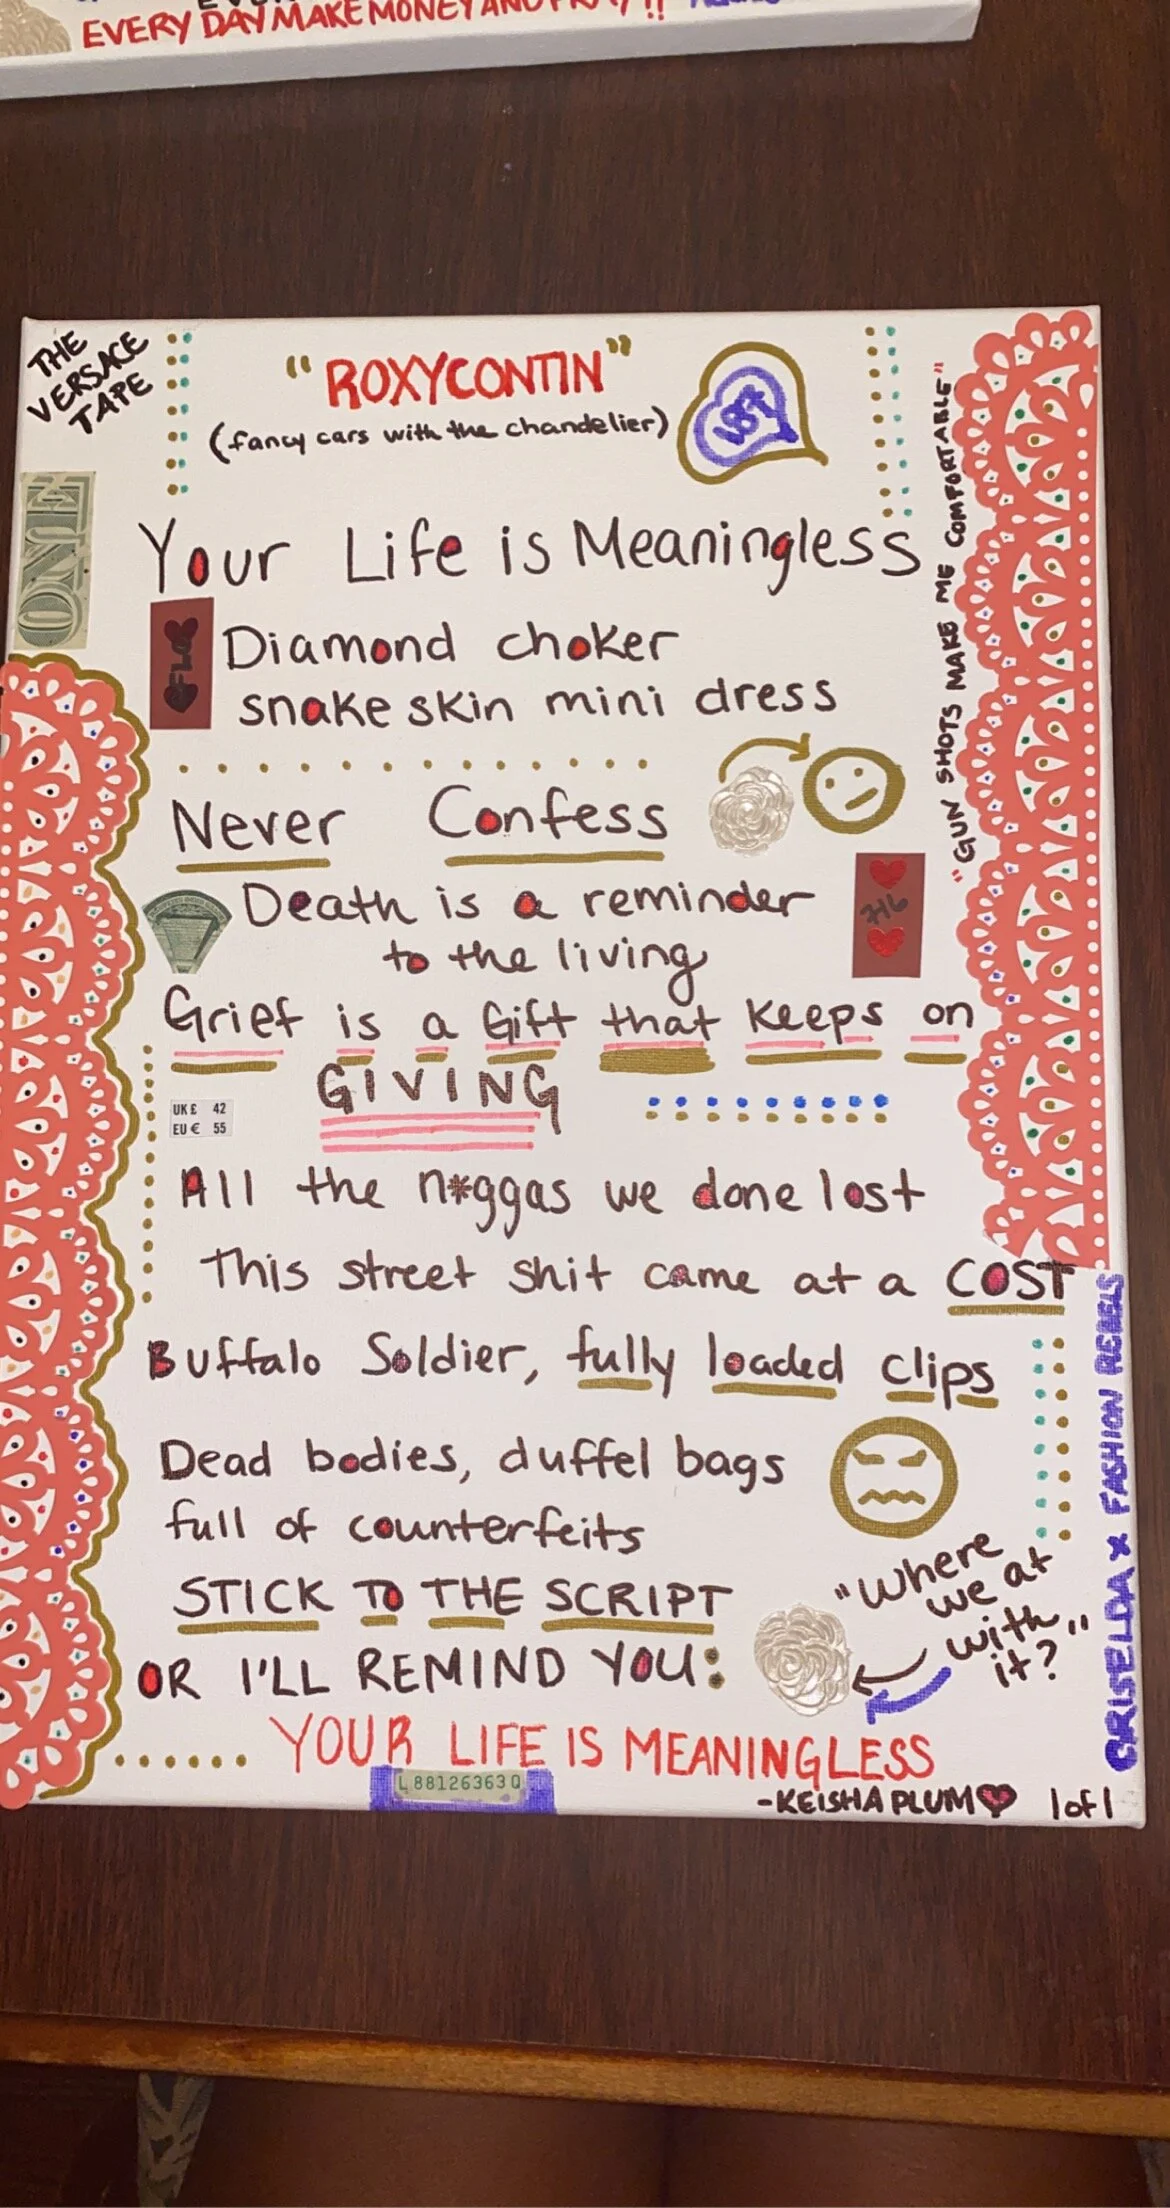 EVERY DAY MAKE MONEY AND PRAY!!
THE
VERSACE
TAPE
"ROXYCONTIN"
(fancy cars with the chandelier)
ONE
Your Life is Meaningless
FLQ
Diamond choker
snake skin mini dress
Never Confess
Death is a reminder
to the living
716
Grief is a Gift that keeps on
GIVING
UK £ 42
EU € 55
All the n*ggas we done lost
This street shit came at a COST
Buffalo Soldier, fully loaded clips
Dead bodies, duffel bags
full of counterfeits
STICK TO THE SCRIPT
OR I'LL REMIND YOU:
YOUR LIFE IS MEANINGLESS
L88126363Q
-KEISHA PLUM 1 of 1
"Where
we at
with
it?"
"GUN SHOTS MAKE ME COMFORTABLE"
GRISELDA x FASHION REBELS